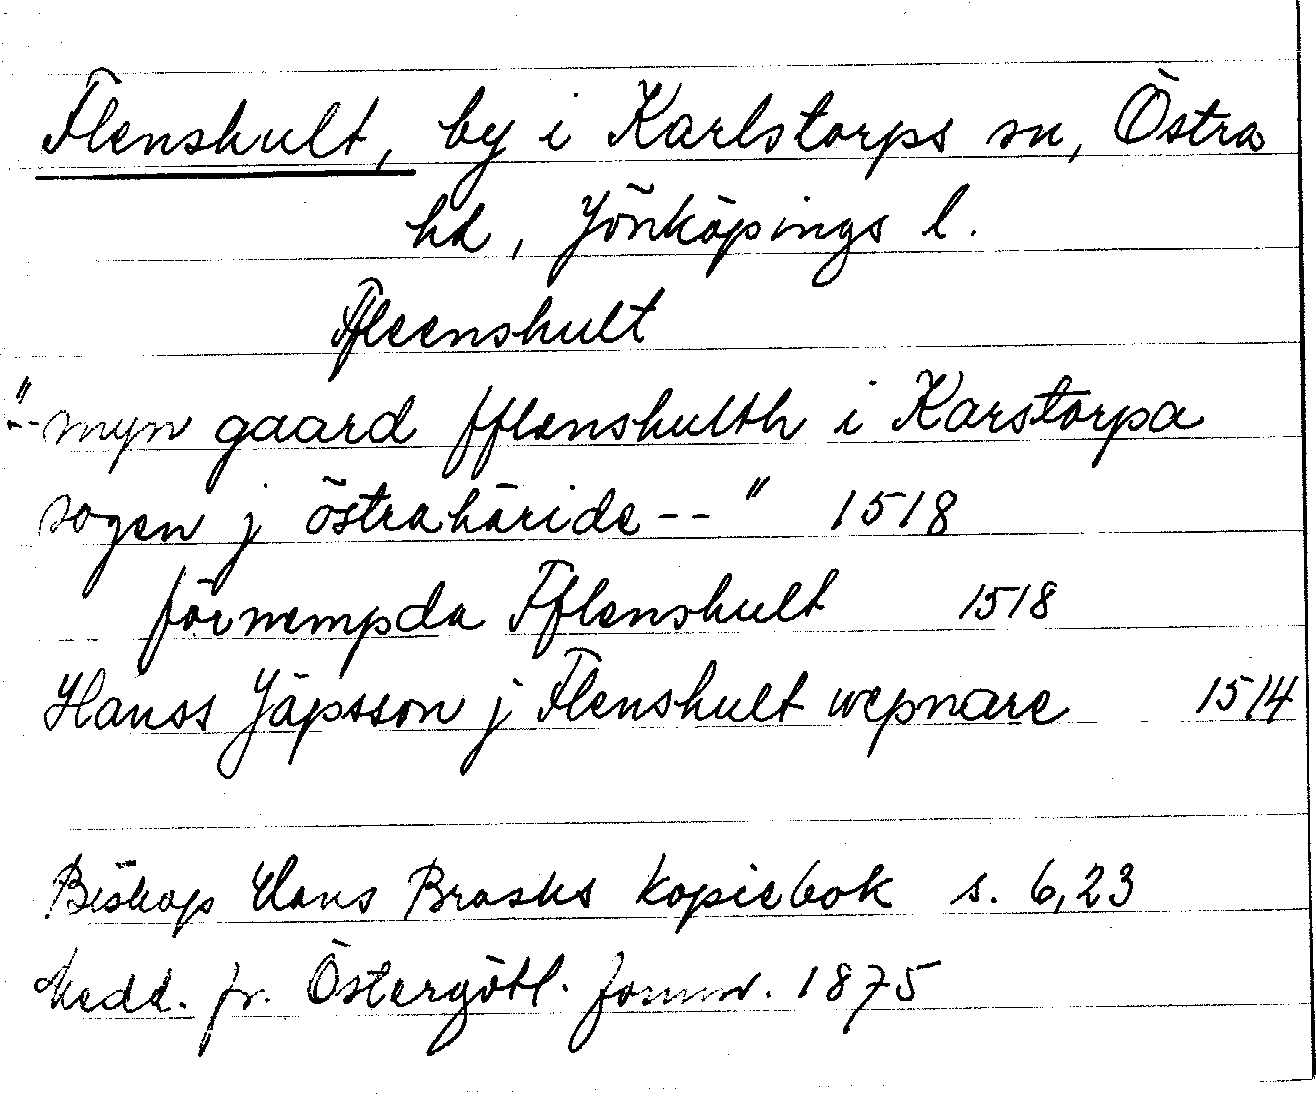 Flenshult, by i Karlstorps sn, Östra
hd, Jönköpings l.
Ffleenshult
"--myn gaard fflenshulth i Karstorpa
sogen j östrahäride--" 1518
förnempda Fflenshult 1518
Hanss Jäpsson j Flenshult wepnare 1514
Biskop Hans Brasks kopiebok s. 6,23
Medd. fr. Östergötl. fornm. 1875